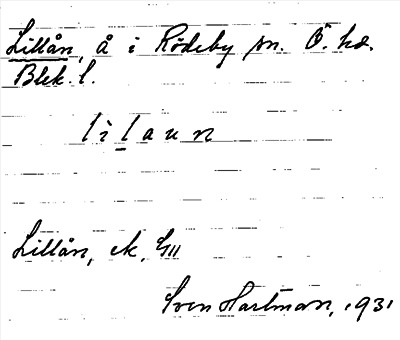 Lillån, å i Rödeby sn. Ö. hd.
Blek. l.
lilaun
Lillån, ek.
Sven Hartman, 1931